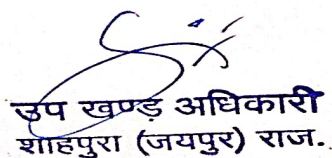 उप खण्ड अधिकारी
शाहपुरा (जयपुर) राज.